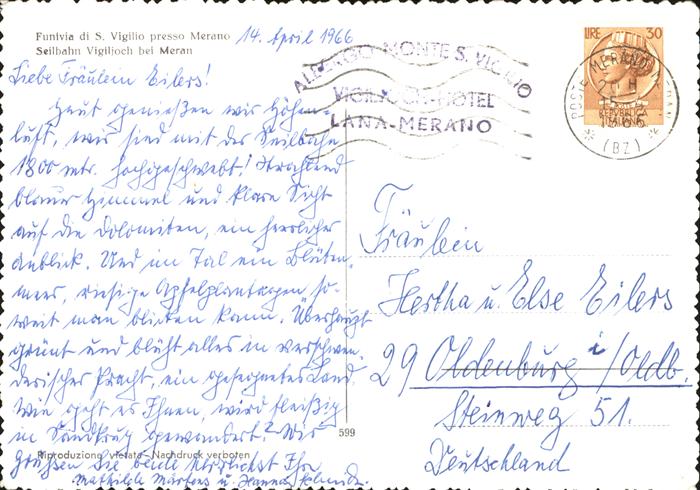 Funivia di S. Vigilio presso Merano
Seilbahn Vigiljoch bei Meran
14. April 1966
Liebe Fräulein Eilers!
Heut genießen wir Höhen-
luft, wir sind mit der Seilbahn
1800 mtr. hochgeschwebt! Strahlend
blauer Himmel und klare Sicht
auf die Dolomiten, ein herrlicher
Anblick. Und im Tal ein Blüten-
meer, riesige Apfelplantagen so-
weit man blicken kann. Überhaupt
grünt und blüht alles in verschwen-
derischer Pracht, ein gesegnetes Land.
Wie geht es Ihnen, wird fleißig
in Sandkrug gewandert? Wir
grüßen Sie beide herzlichst Ihre
Mathilde Märtens u. Hanna
Riproduzione vietata - Nachdruck verboten
599
ALBERGO MONTE S. VIGILIO
VIGILJOCH-HOTEL
LANA-MERANO
LIRE 30
REPVBBLICA
ITALIANA
POSTE MERANO MERAN
(BZ)
Fräulein
Hertha u. Else Eilers
29 Oldenburg i/Oldb.
Steinweg 51.
Deutschland